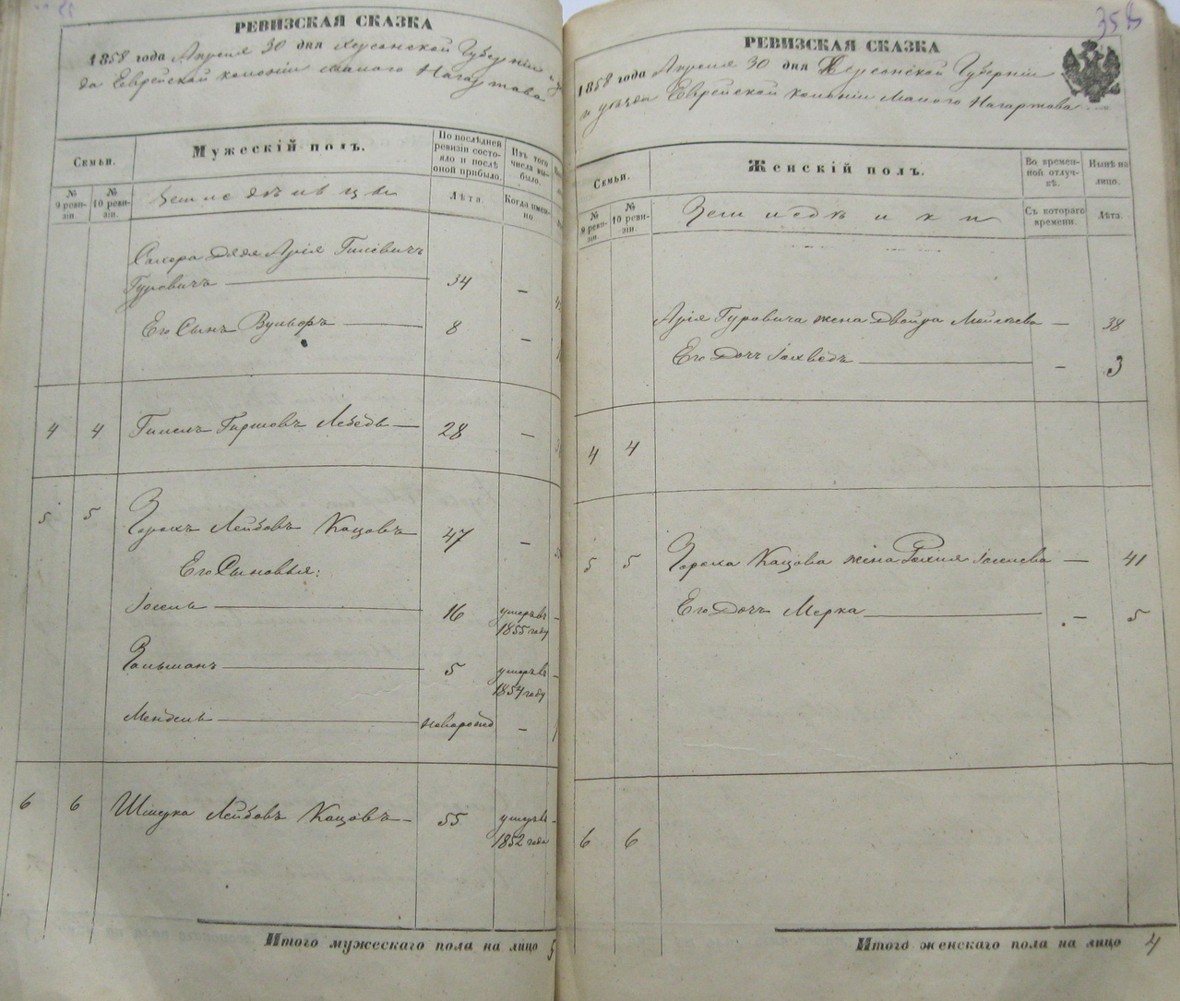 РЕВИЗСКАЯ СКАЗКА
1858 года Апреля 30 дня Херсонской Губерніи и у
да Еврейской колоніи Малого Нагартова
Семьи.
Мужескій полъ.
По послѣдней ревизіи состояло и послѣ оной прибыло.
Изъ того числа выбыло.
№ 9 ревизіи.
№ 10 ревизіи.
Земледѣльцы
Лѣта.
Когда именно
дядя Арія Гилевичъ
Гуровичъ
34
—
Его Сынъ Вульфъ
8
—
4
4
Гиршовъ Лебедь
28
—
5
5
Лейбовъ Кацовъ
47
—
Его Сыновья:
Іосель
16
умеръ въ
1855 году
Зальманъ
5
умеръ въ
1854 году
Мендель
новорожд
—
6
6
Шмерка Лейбовъ Кацовъ
55
умеръ въ
1852 года
Итого мужескаго пола на лицо 5
358
РЕВИЗСКАЯ СКАЗКА
1858 года Апреля 30 дня Херсонской Губерніи
и уѣзда Еврейской колоніи Малого Нагартова
Семьи.
Женскій полъ.
Во временной отлучкѣ.
Нынѣ на лицо.
№ 9 ревизіи.
№ 10 ревизіи.
Съ котораго времени.
Лѣта.
Арія Гуровича жена Двойра
—
38
Его Дочь Іохведъ
—
3
4
4
5
5
Кацова жена
—
41
Его Дочь Мерка
—
5
6
6
Итого женскаго пола на лицо 4